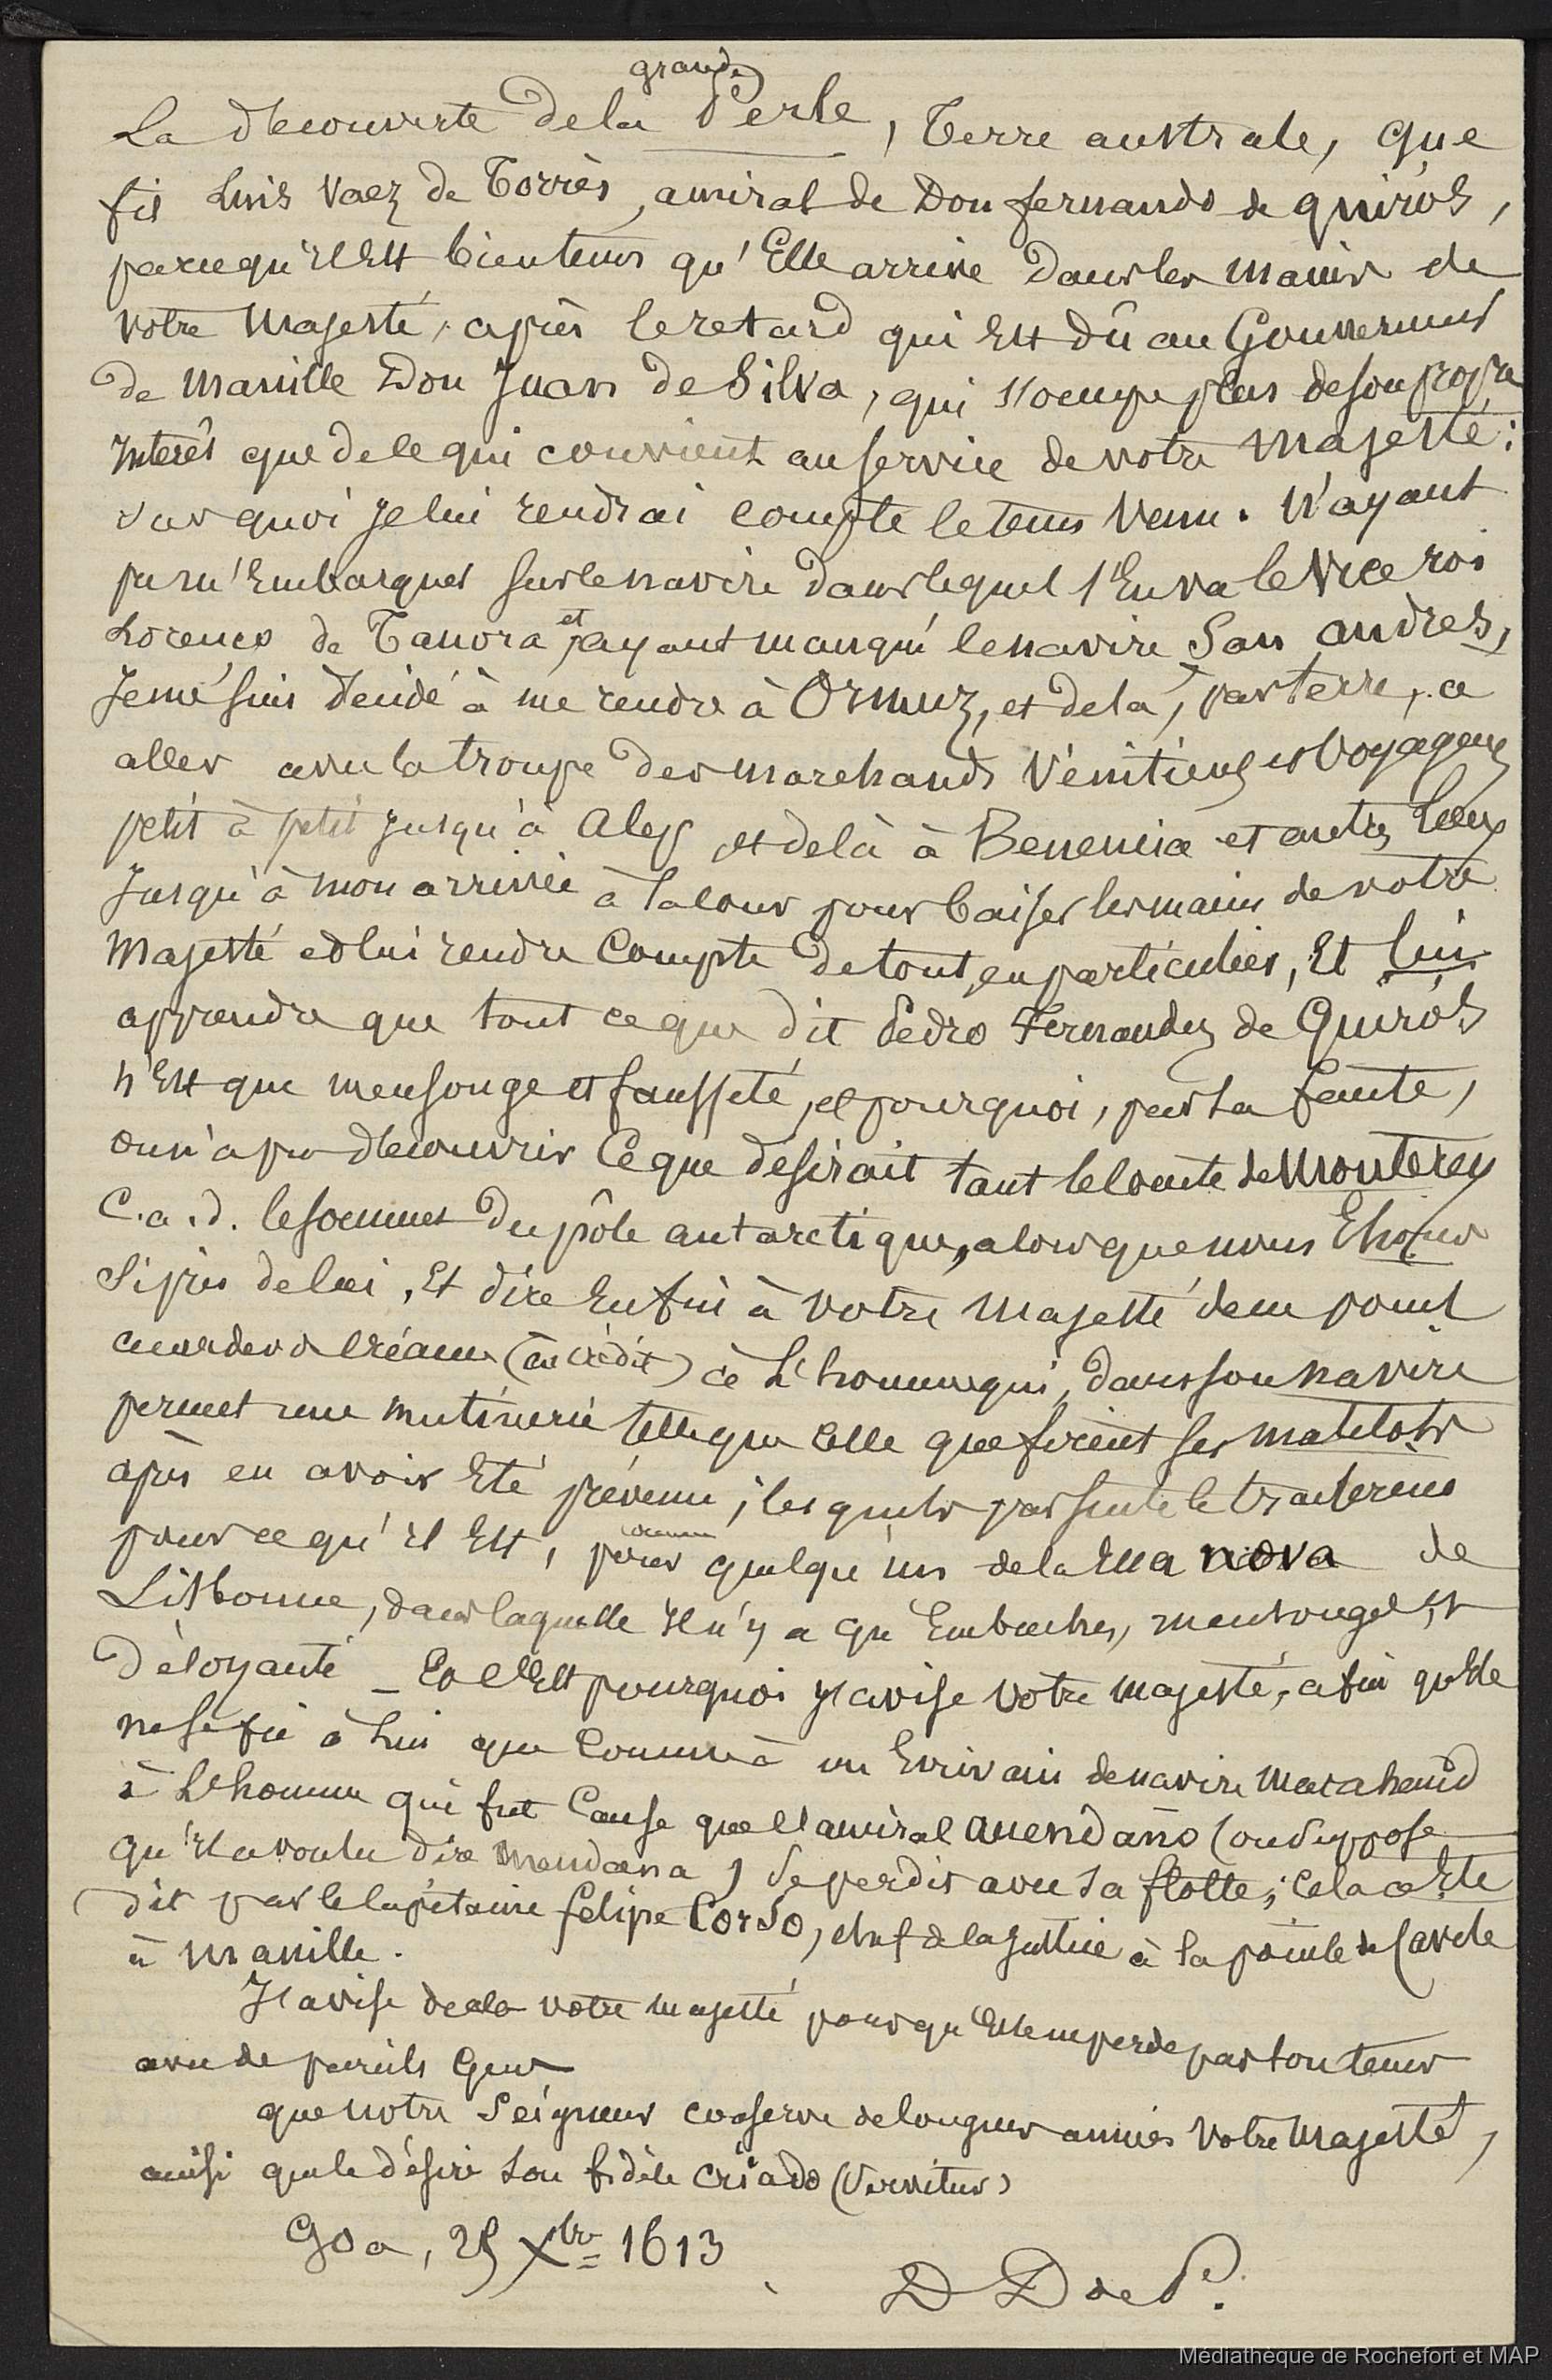 grande
La découverte de la Perle, Terre australe, que
fit Luis Vaez de Torrès, amiral de Don fernando de quirós,
parcequ'il Est bientems qu'Elle arrive dans les mains de
votre Majesté, après le retard qui Est dû au Gouverneur
de Manille Don Juan de Silva, qui s'occupe plus de son propre
Interêt que de ce qui convient au service de votre Majesté:
sur quoi je lui rendrai compte le tems venu. N'ayant
pu m'Embarquer sur le navire dans lequel s'En va le Vice roi
Lorenço de Tavora et ayant manqué le navire San andres,
Je me suis décidé à me rendre à Ormuz, et de là, par terre, a
aller avec la troupe des marchands Vénitiens et Voyageurs
petit à petit jusqu'à Alep et delà à Benencia et autres lieux
Jusqu'à mon arrivée à la cour pour baiser les mains de votre
Majesté et lui rendre Compte de tout, en particulier, Et lui
apprendre que tout ce que dit Pedro Fernandez de Quirós
n'Est que mensonge et fausseté, et pourquoi, par sa faute,
on n'a pu découvrir Ce que desirait tant le Comte de Monterey
C.a.d. le sommet du pôle antarctique, alors que nous Etions
si près de lui, Et dire Enfin à votre Majesté de ne point
accorder de créance (du crédit) à l'homme qui, dans son navire
permet une mutinerie telle que celle que firent ses matelots
après en avoir Eté prévenu; lesquels par suite le traiterent
pour ce qu'il Est, pour comme quelqu'un de la Rua nova de
Lisbonne, dans laquelle il n'y a qu'Embuches, mensonges et
déloyauté _ Et c'Est pourquoi j'avise votre Majesté, afin qu'Elle
ne se fie à lui que Comme à un Ecrivain de navire Marchand
à l'homme qui fut Cause que l'amiral Avendaño (on suppose
qu'il a voulu dire Mendana) se perdit avec sa flotte; Cela a Eté
dit par le Capitaine felipe Corso, chef de la justice à la pointe de Cavite
à Manille.
J'avise de cela votre Majesté pour qu'Elle ne perde pas son tems
avec de pareils Gens
que notre Seigneur conserve de longues années Votre Majesté,
ainsi que le désire son fidèle Criado (Serviteur)
Goa, 25 Xbre 1613
D D de P.
Médiathèque de Rochefort et MAP